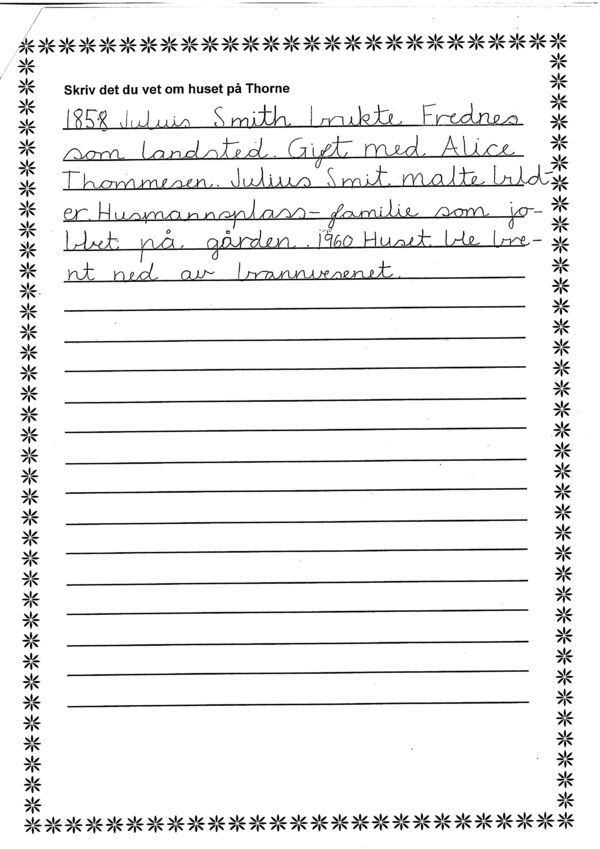 Skriv det du vet om huset på Thorne
1858 Juluis Smith brukte Frednes
som landsted. Gift med Alice
Thommesen. Julius Smit malte bild-
er. Husmannsplass-familie som jo-
bbet på gården. 1960 Huset ble bre-
nt ned av brannvesenet.